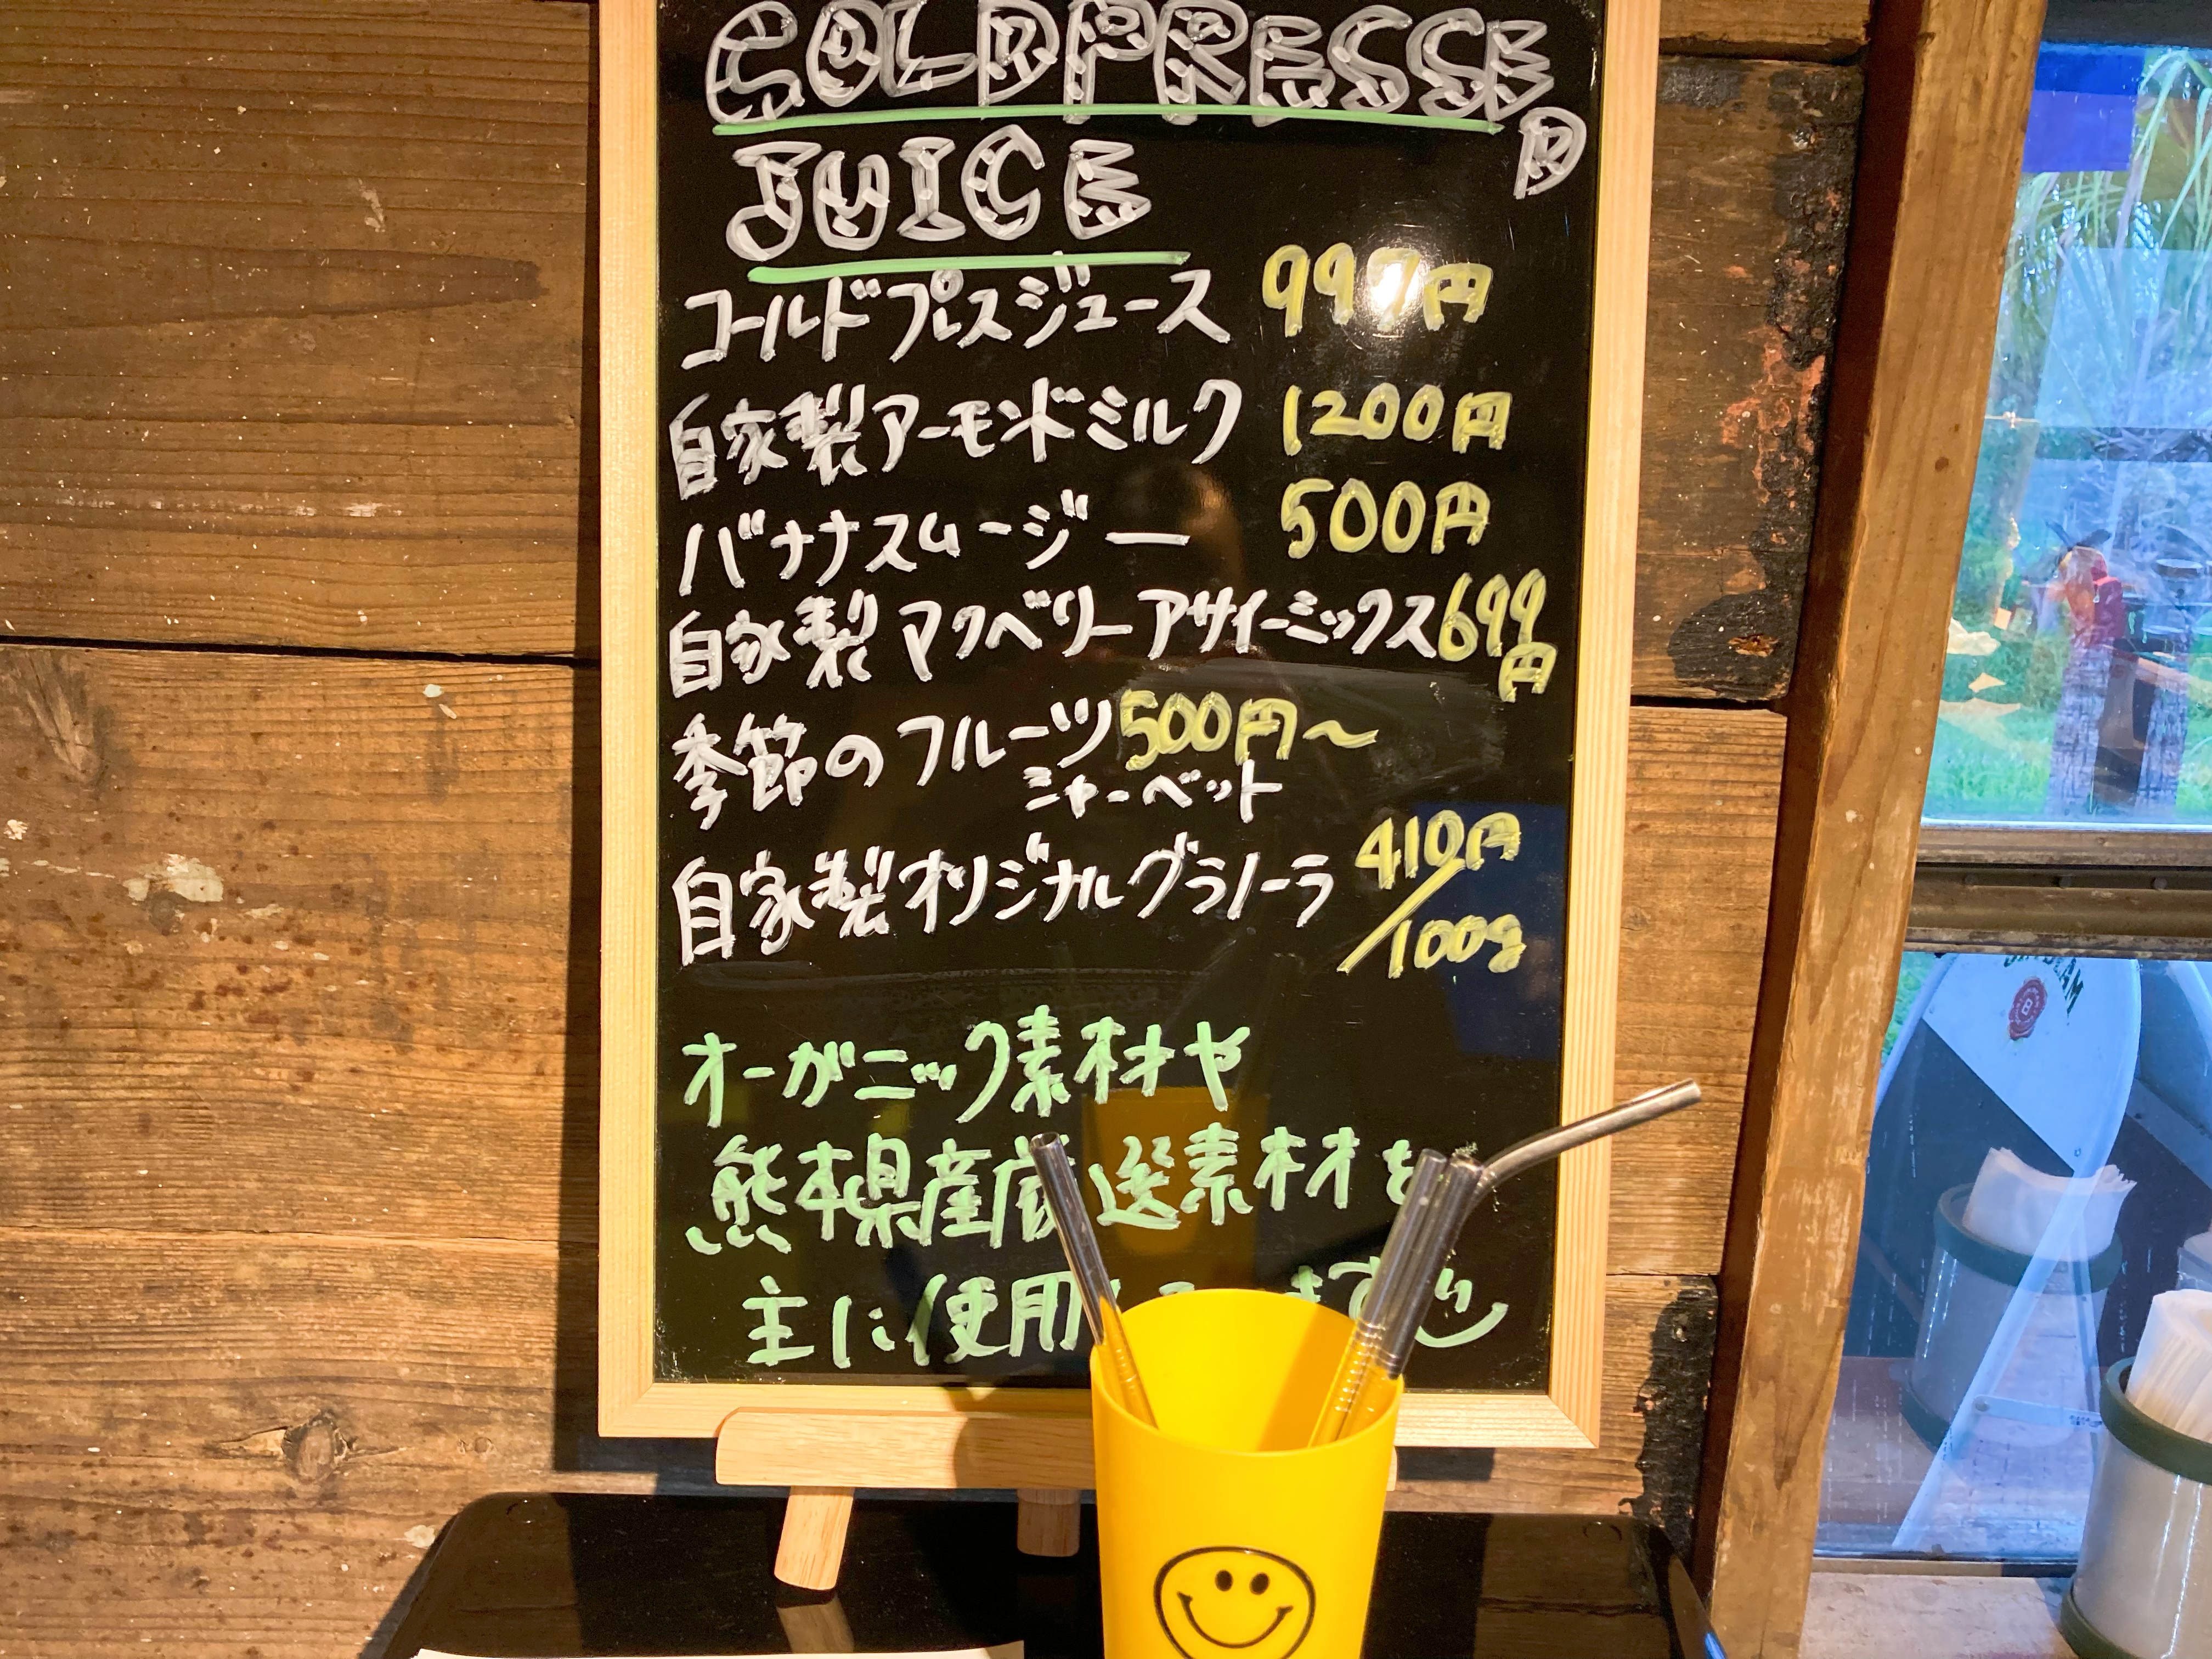 COLDPRESSED
JUICE
コールドプレスジュース 999円
自家製アーモンドミルク 1200円
バナナスムージー 500円
自家製 マクベリーアサイーミックス 699円
季節のフルーツ 500円〜
シャーベット
自家製オリジナルグラノーラ 410円/100g
オーガニック素材や
熊本県産厳選素材を
主に使用 ます
BEAM
B